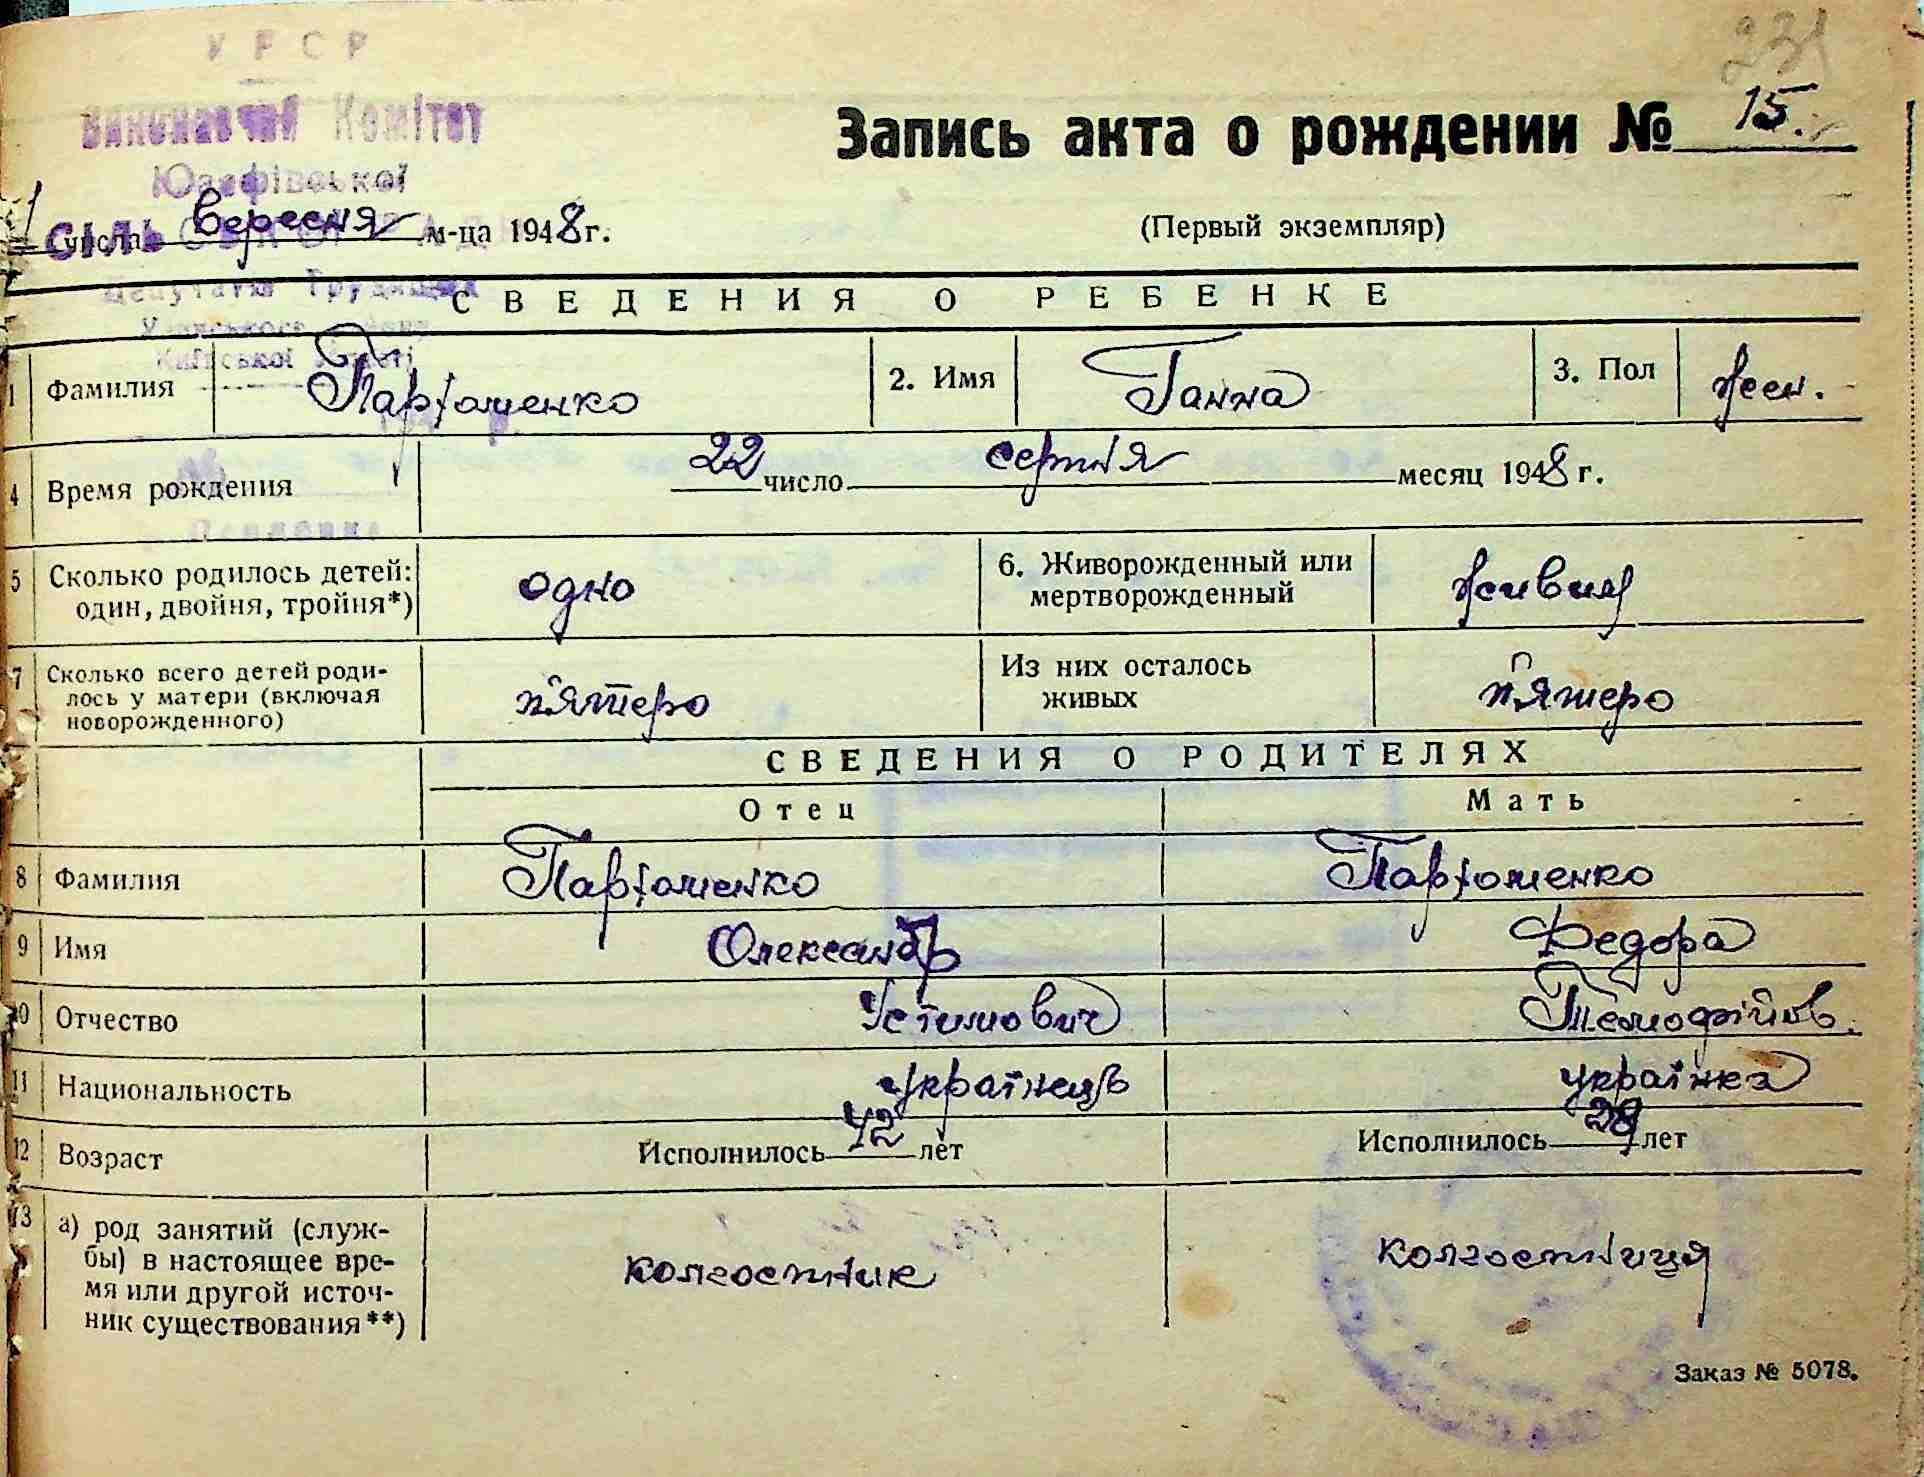 УРСР
Виконавчий Комітет
Юзефівської
231
Запись акта о рождении № 15.
1 числа вересня м-ца 1948 г.
(Первый экземпляр)
Депутатів Трудящих
Київської області
СВЕДЕНИЯ О РЕБЕНКЕ
1 Фамилия Пархоменко 2. Имя Ганна 3. Пол жен.
4 Время рождения 22 число серпня месяц 1948 г.
5 Сколько родилось детей: один, двойня, тройня*) одно 6. Живорожденный или мертворожденный живий
7 Сколько всего детей родилось у матери (включая новорожденного) п'ятеро Из них осталось живых п'ятеро
СВЕДЕНИЯ О РОДИТЕЛЯХ
Отец Мать
8 Фамилия Пархоменко Пархоменко
9 Имя Олександр Федора
10 Отчество Устимович Тимофійов.
11 Национальность українець українка
12 Возраст Исполнилось 42 лет Исполнилось лет
13 а) род занятий (служ-
бы) в настоящее вре-
мя или другой источ-
ник существования**) колгоспник колгоспниця
Заказ № 5078.